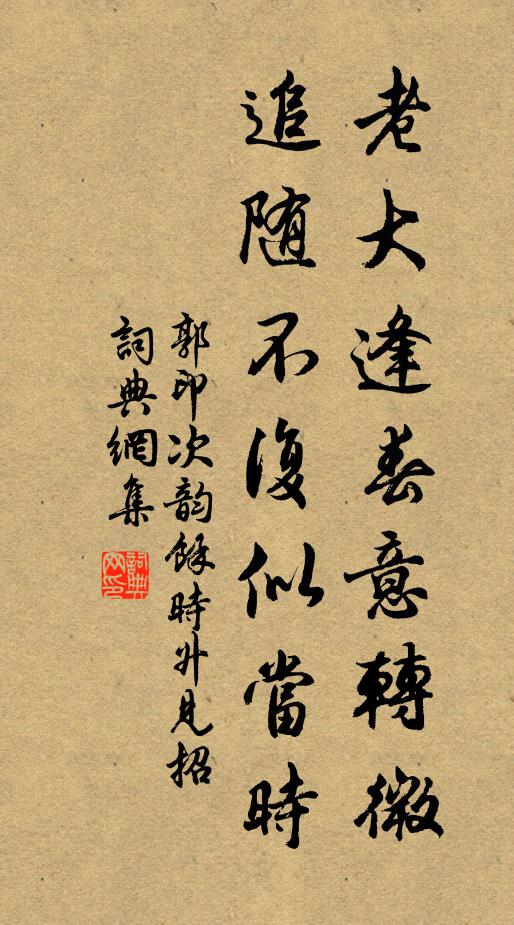 老大逢春意轉微
追随不復似當時
郭印次韵餘時升見招
詞典網集
詞典網印